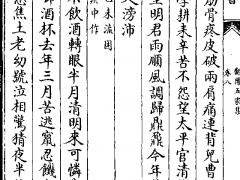 筋骨疼皮破兩肩痛連背兒曹
耕耒辛苦不怨望太平官清
明君雨順風調歸鼎鼐今年
又滂沛
未流困
中作
不飲酒轉眼半月清明來可憐
卸酒杯去年三月苦逃竄忍饑
焦土老幼號泣相驚猜夜半
卷八
五家集